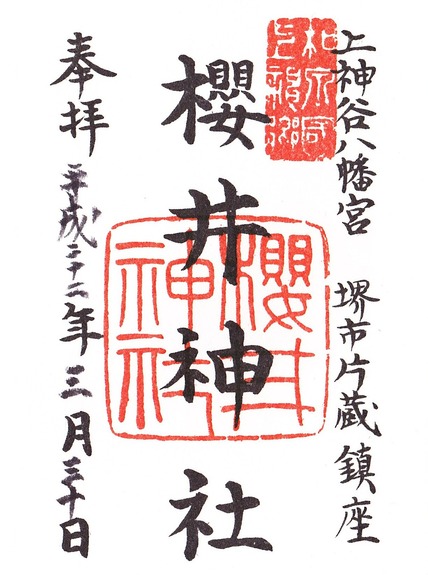 上神谷八幡宮 堺市片蔵鎮座
和泉國
櫻井神社
櫻井
神社
奉拝 平成二十二年三月三十日